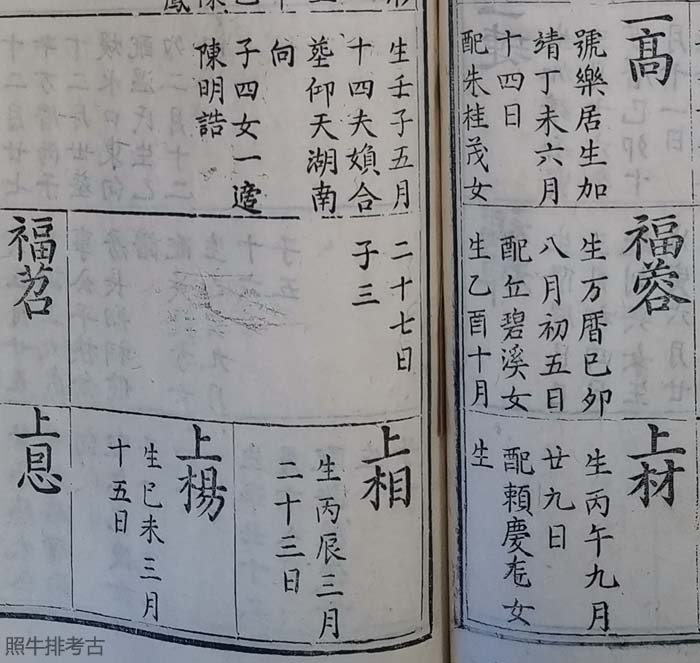 一高
號樂居生加
靖丁未六月
十四日
配朱桂茂女
生壬子五月
十四夫媍合
塟仰天湖南
向
子四女一適
陳明誥
福蓉
生万曆巳卯
八月初五日
配丘碧溪女
生乙酉十月
二十七日
子三
福
上材
生丙午九月
廿九日
配賴慶女
生
上相
生丙辰三月
二十三日
上楊
生巳未三月
十五日
上息
照牛排考古